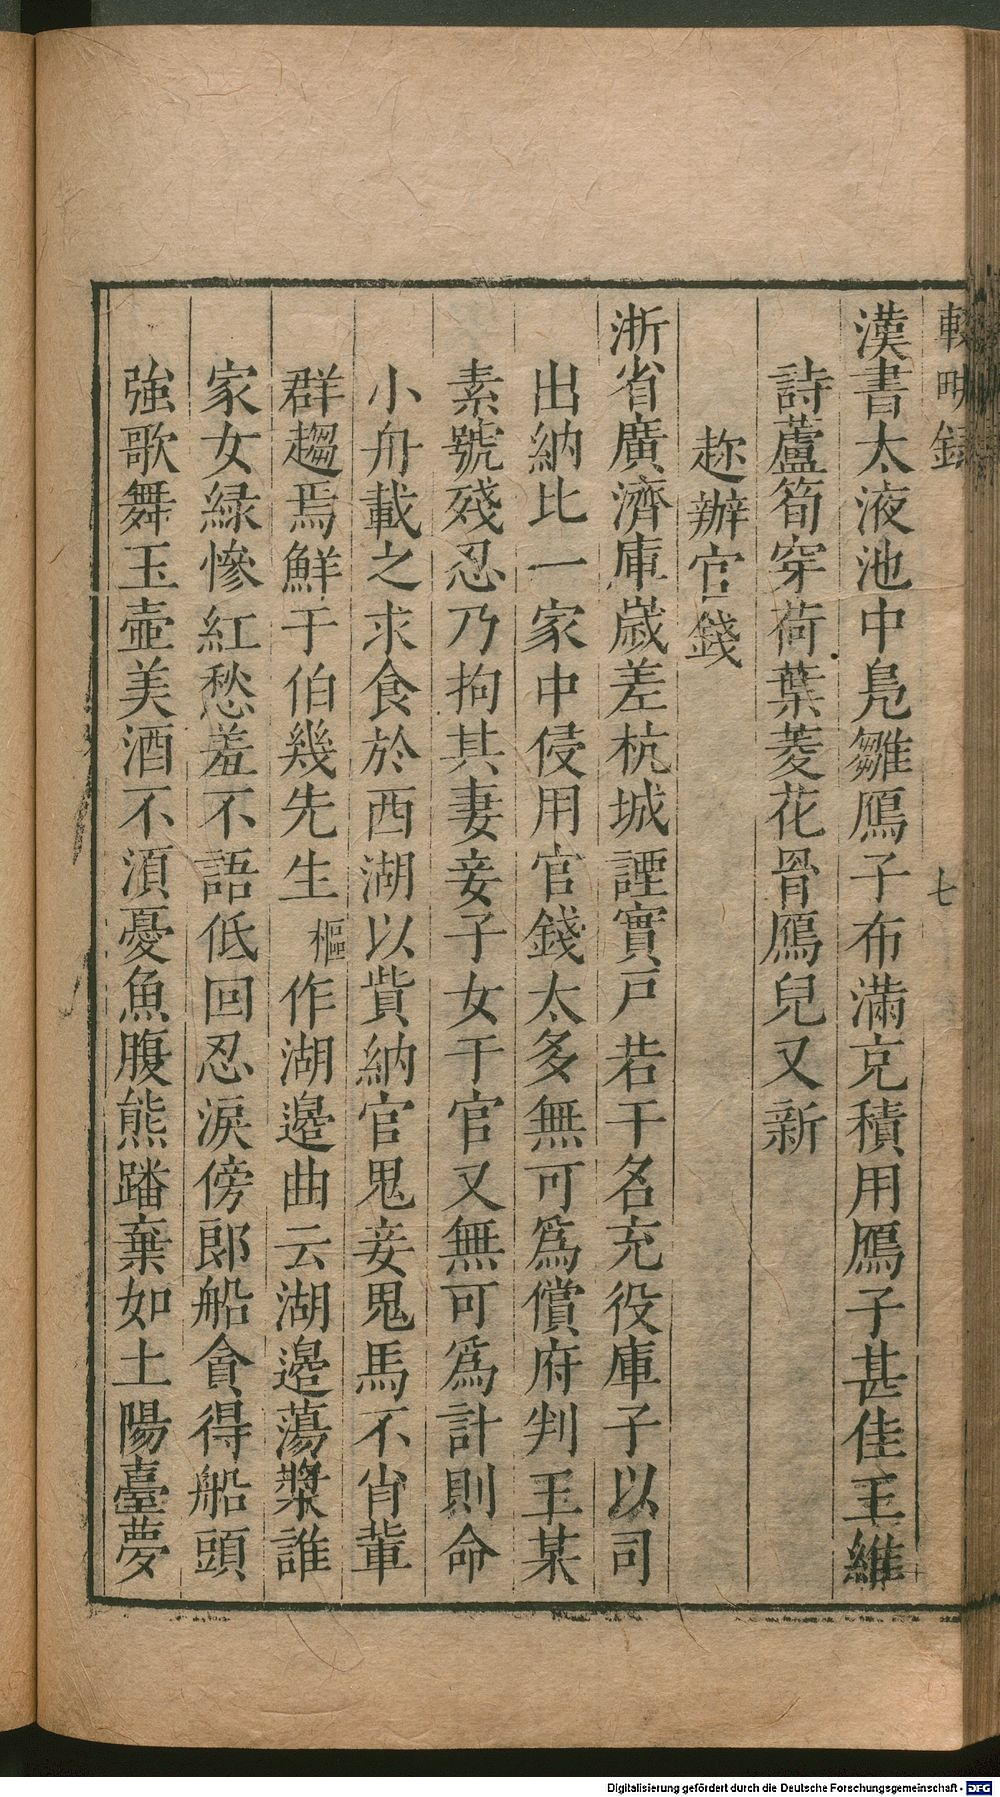 輟畊録
七
漢書太液池中鳧雛鴈子布滿充積用鴈子甚佳王維
詩蘆筍穿荷葉菱花罥鴈兒又新
趂辦官錢
浙省廣濟庫歲差杭城諲實戸若干名充役庫子以司
出納比一家中侵用官錢太多無可爲償府判王某
素號殘忍乃拘其妻妾子女于官又無可爲計則命
小舟載之求食於西湖以貲納官鬼妾鬼馬不肖軰
群趨焉鮮于伯幾先生樞作湖邉曲云湖邉蕩槳誰
家女緑慘紅愁羞不語低回忍淚傍郎船貪得船頭
強歌舞玉壷美酒不湏憂魚腹熊蹯棄如土陽臺夢
Digitalisierung gefördert durch die Deutsche Forschungsgemeinschaft - DFG